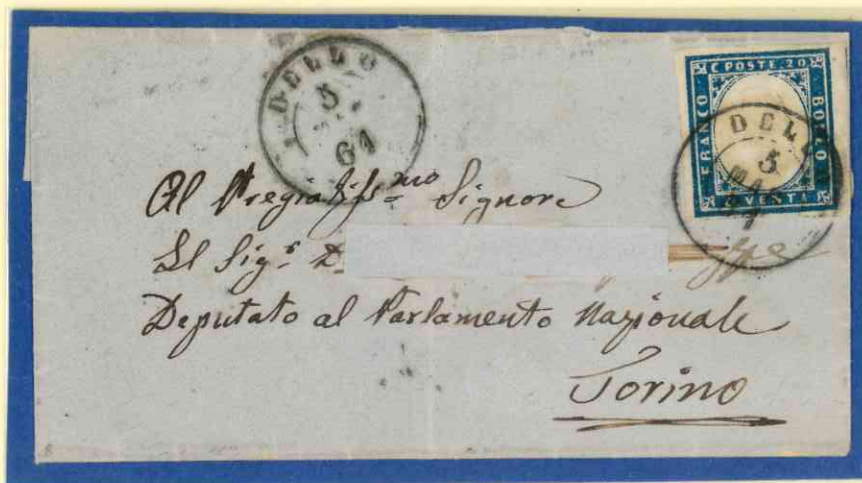 DELLO
5
61
C POSTE 20
FRANCO
BOLLO
C VENTI
DELLO
5
MAG
61
Al Pregiatiss.mo Signore
Il Sig.r D
ppe
Deputato al Parlamento Nazionale
Torino